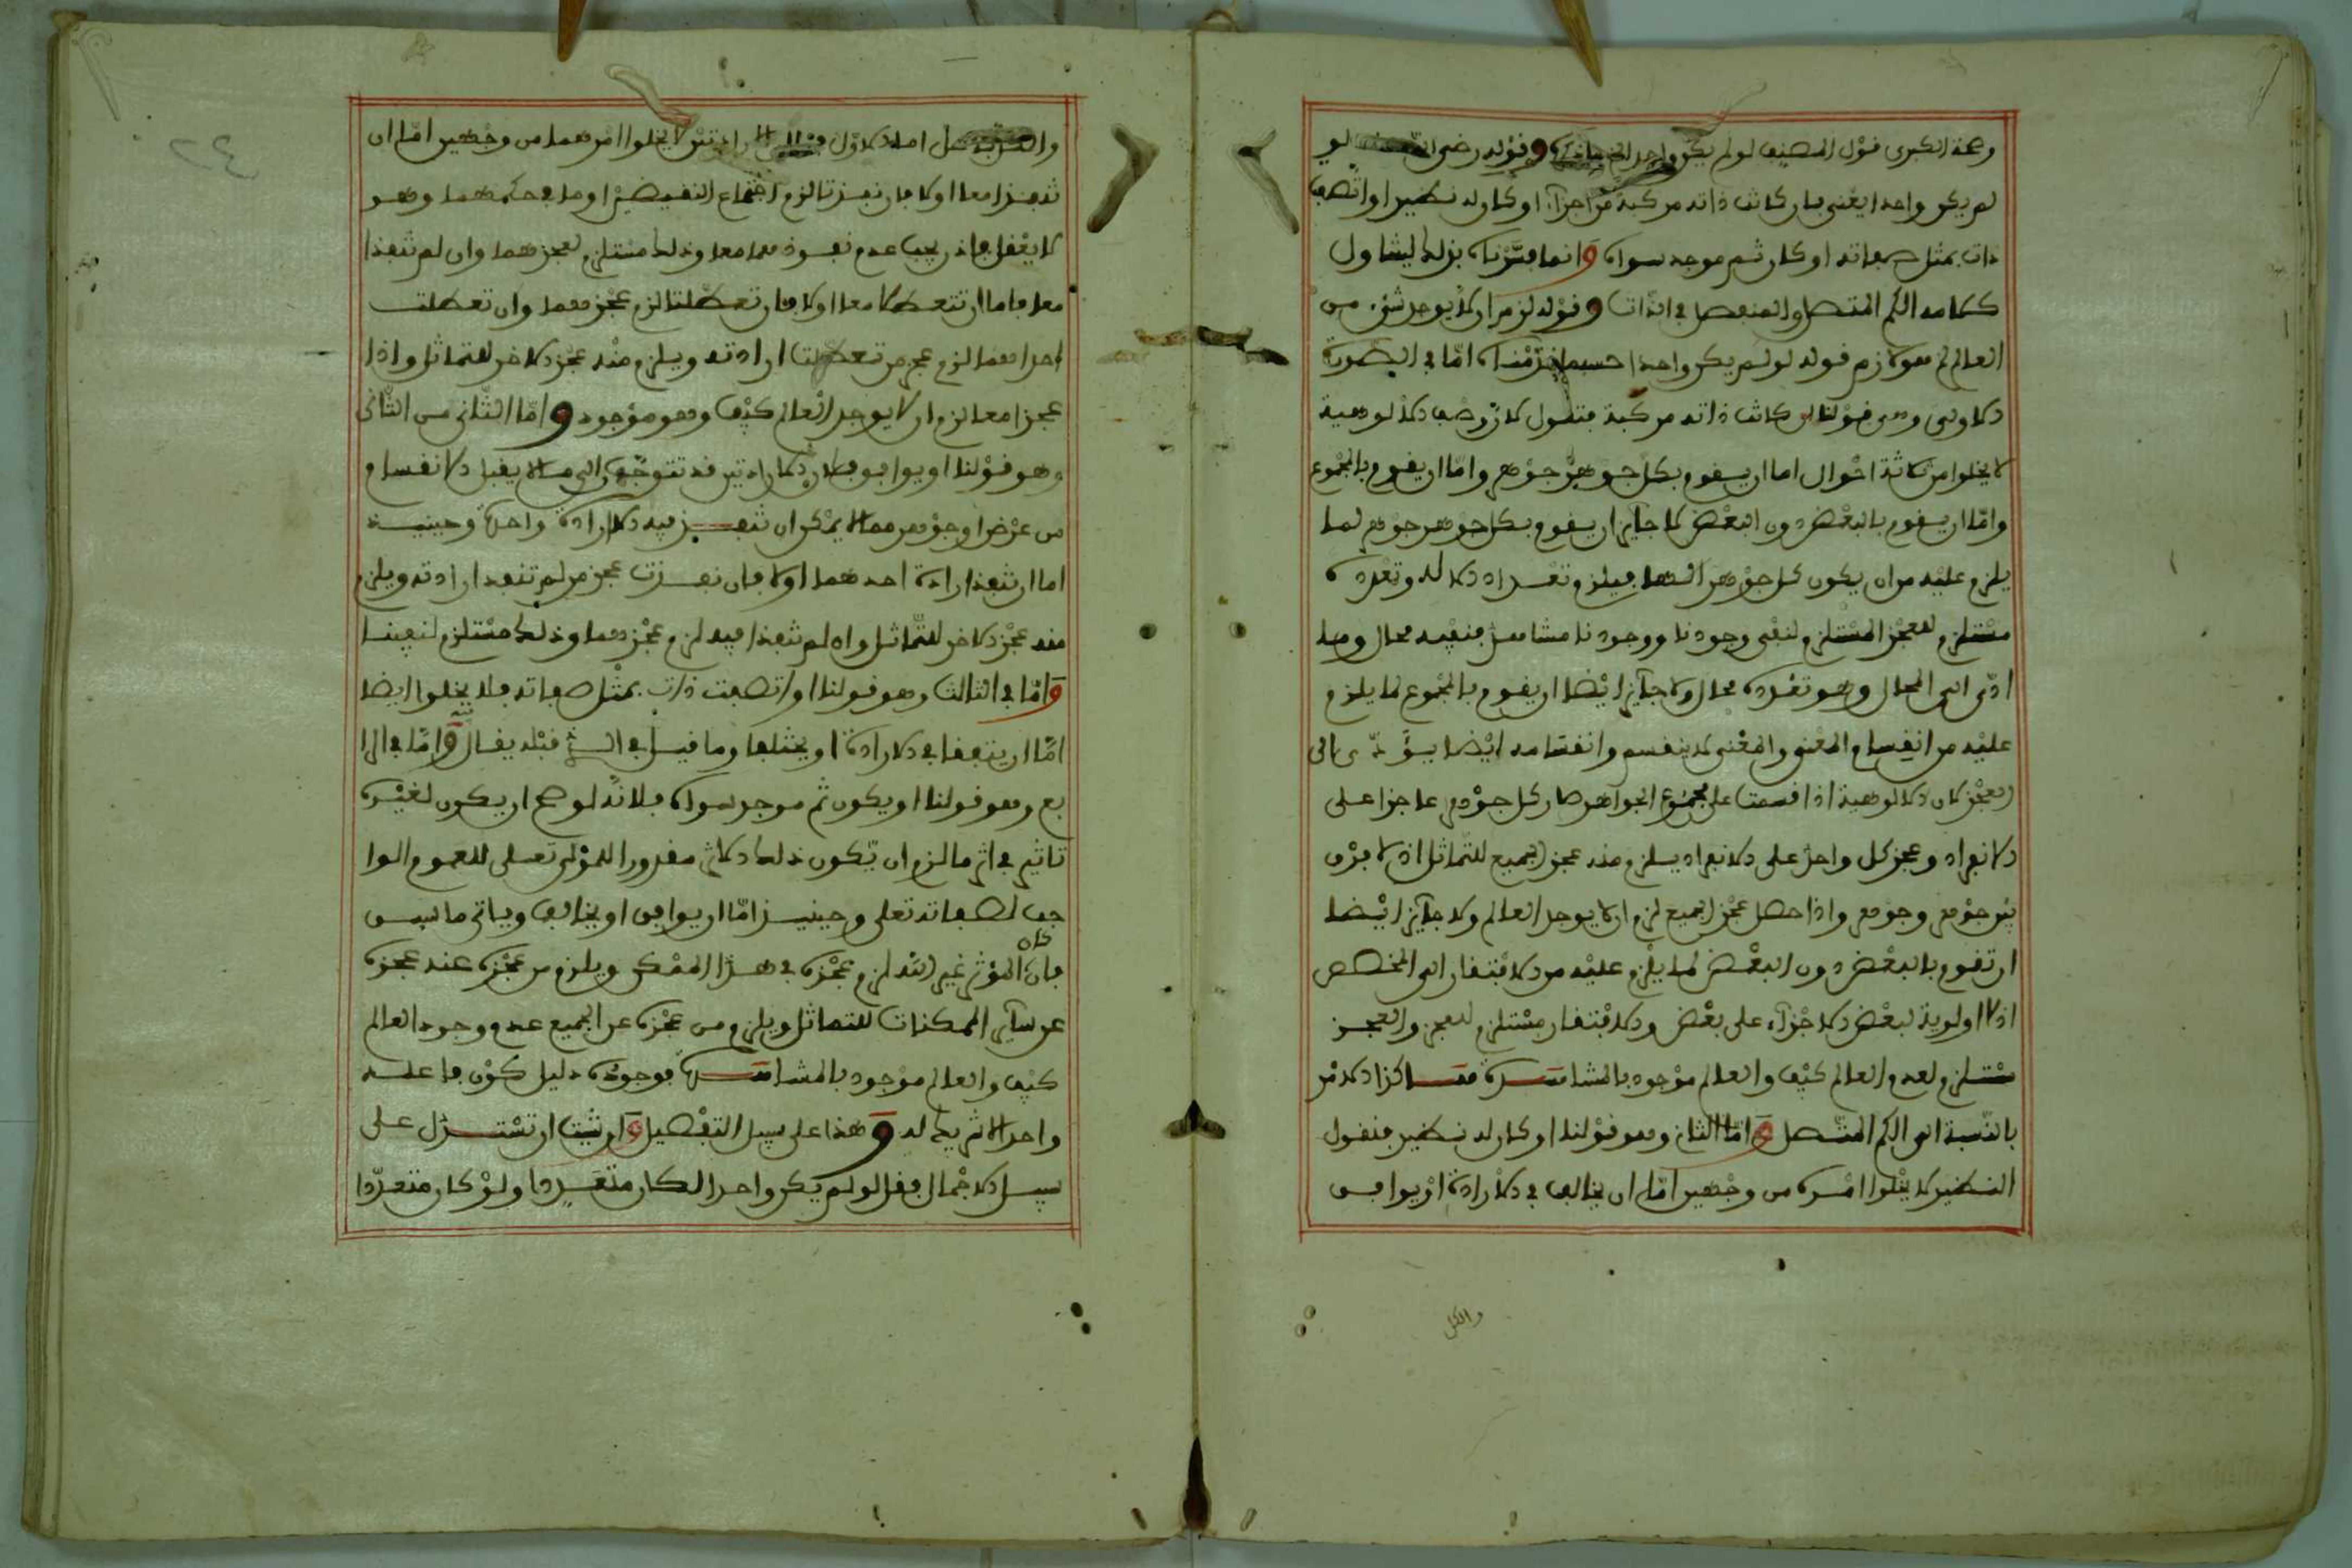 وهذه الكبرى قول المصنف لو لم يكن واحدا وقوله رضي الله لو
لم يكن واحدا يعني بان كانت ذاته مركبة من اجزاء او كان له نظير او اتصفت
ذات بمثل صفاته او كان ثم موجد سواه وانما فسرناه بذلك ليتناول
كلامه الكم المتصل والمنفصل في الذات وقوله لزم ان لا يوجد شيء من
العالم هو لازم قوله لو لم يكن واحدا حسبما اما في الصورة
الاولى وهي قولنا ان كانت ذاته مركبة فنقول لان وصف الالوهية
لا يخلوا من ثلاثة احوال اما ان يقوم بكل جوهر جوهر واما ان يقوم بالمجموع
واما ان يقوم بالبعض دون البعض لا جايز ان يقوم بكل جوهر جوهر لما
يلزم عليه من ان يكون كل جوهر الها فيلزم تعدد الاله وتعدده
مستلزم للعجز المستلزم لنفي وجودنا ووجودنا مشاهد فنفيه محال وما
ادى الى المحال وهو تعدده محال ولا جايز ايضا ان يقوم بالمجموع لما يلزم
عليه من انقسام المعنى والمعنى لا ينقسم وانقسامه ايضا يؤدي الى
العجز لان الالوهية اذا قسمت على مجموع الجواهر صار كل جوهر عاجزا على
الانفراد وعجز كل واحد على الانفراد يلزم منه عجز الجميع للتماثل اذ لا فرق
بين جوهر وجوهر واذا حصل عجز الجميع لزم ان لا يوجد العالم ولا جايز ايضا
ان تقوم بالبعض دون البعض لما يلزم عليه من الافتقار الى المخصص
اذ لا اولوية لبعض الاجزاء على بعض والافتقار مستلزم للعجز والعجز
مستلزم لعدم العالم كيف والعالم موجود بالمشاهدة هكذا الامر
بالنسبة الى الكم المتصل واما الثاني وهو قولنا او كان له نظير فنقول
النظير لا يخلوا امره من وجهين اما ان يخالف في الارادة او يوافق
والكل
اما الاول لا يخلوا امرهما من وجهين اما ان
تنفذا معا او لا فان نفذتا لزم اجتماع النقيضين او ما في حكمهما وهو
لا يعقل فاذن يجب عدم نفوذهما معا وذلك مستلزم لعجزهما وان لم تنفذا
معا فاما ان تتعطلا معا او لا فان تعطلتا لزم عجزهما وان تعطلت
احداهما لزم عجز من تعطلت ارادته ويلزم منه عجز الاخر للتماثل واذا
عجزا معا لزم ان لا يوجد العالم كيف وهو موجود واما الثاني من الثاني
وهو قولنا او يوافق فلان الارادتين قد تتوجه الى ما لا يقبل الانقسام
من عرض او جوهر مما لا يمكن ان تنفذ فيه الا ارادة واحدة وحينيذ
اما ان تنفذ ارادة احدهما او لا فان نفذت عجز من لم تنفذ ارادته ويلزم
منه عجز الاخر للتماثل وان لم تنفذا فيه لزم عجزهما وذلك مستلزم لنفينا
واما في الثالث وهو قولنا او اتصفت ذات بمثل صفاته فلا يخلوا ايضا
اما ان يتفقا في الارادة او يختلفا وما قيل في الذي قبله يقال فيه واما في الرا
بع وهو قولنا او يكون ثم موجد سواه فلانه لو صح ان يكون لغيره
تاثير في اثر ما لزم ان يكون ذلك الاثر مقدورا للمولى تعلى للعموم الوا
جب لصفاته تعلى وحينيذ اما ان يوافق او يخالف وياتي ما سبق
فان كان المؤثر غير الله لزم عجزه في هذا الممكن ويلزم من عجزه عنه عجزه
عن سائر الممكنات للتماثل ويلزم من عجزه عن الجميع عدم وجود العالم
كيف والعالم موجود بالمشاهدة فوجوده دليل كون فاعله
واحد لا شريك له وهذا على سبيل التفصيل وان شيت ان تستدل على
سبيل الاجمال فقل لو لم يكن واحدا لكان متعددا ولو كان متعددا